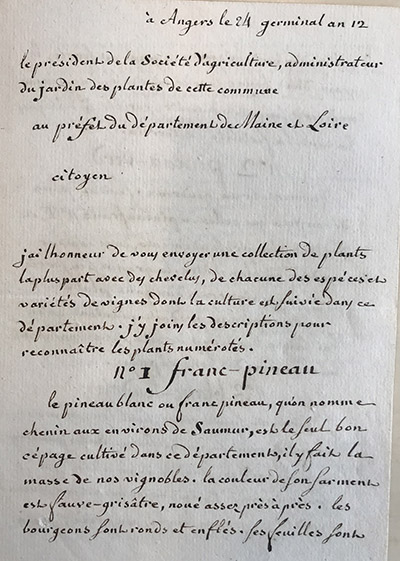 à Angers le 24 germinal an 12
le président de la Société d'agriculture, administrateur
du jardin des plantes de cette commune
au préfet du département de Maine et Loire
citoyen
j'ai lhonneur de vous envoyer une collection de plants
la plus part avec des chevelus, de chacune des espéces et
variétés de vignes dont la culture est suivie dans ce
département. j'y joins les descriptions pour
reconnaître les plants numérotés.
n° 1 franc-pineau
le pineau blanc ou franc pineau, qu'on nomme
chenin aux environs de Saumur, est le seul bon
cépage cultivé dans ce département, il y fait la
masse de nos vignobles. la couleur de son sarment
est fauve-grisâtre, noué assez près à près. les
bourgeons sont ronds et enflés. ses feuilles sont